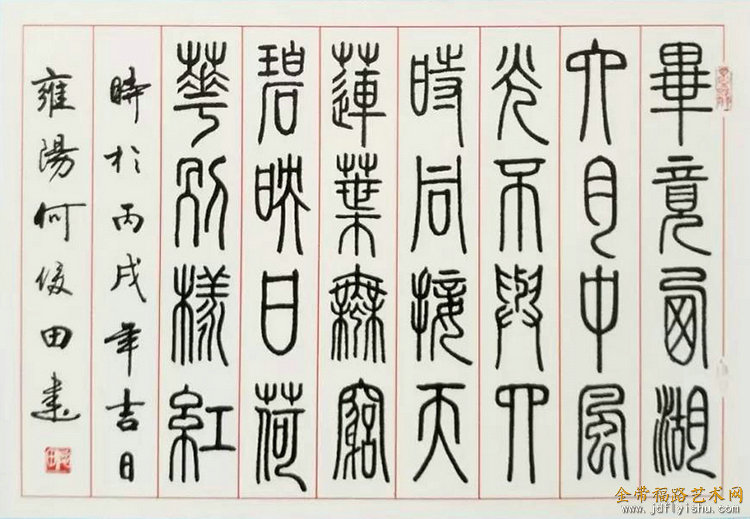 畢竟西湖
六月中風
光不與四
時同接天
蓮葉無窮
碧映日荷
華別樣紅
時於丙戌年吉日
雍陽何俊田書
金带福路艺术网
www.jdflyishu.com